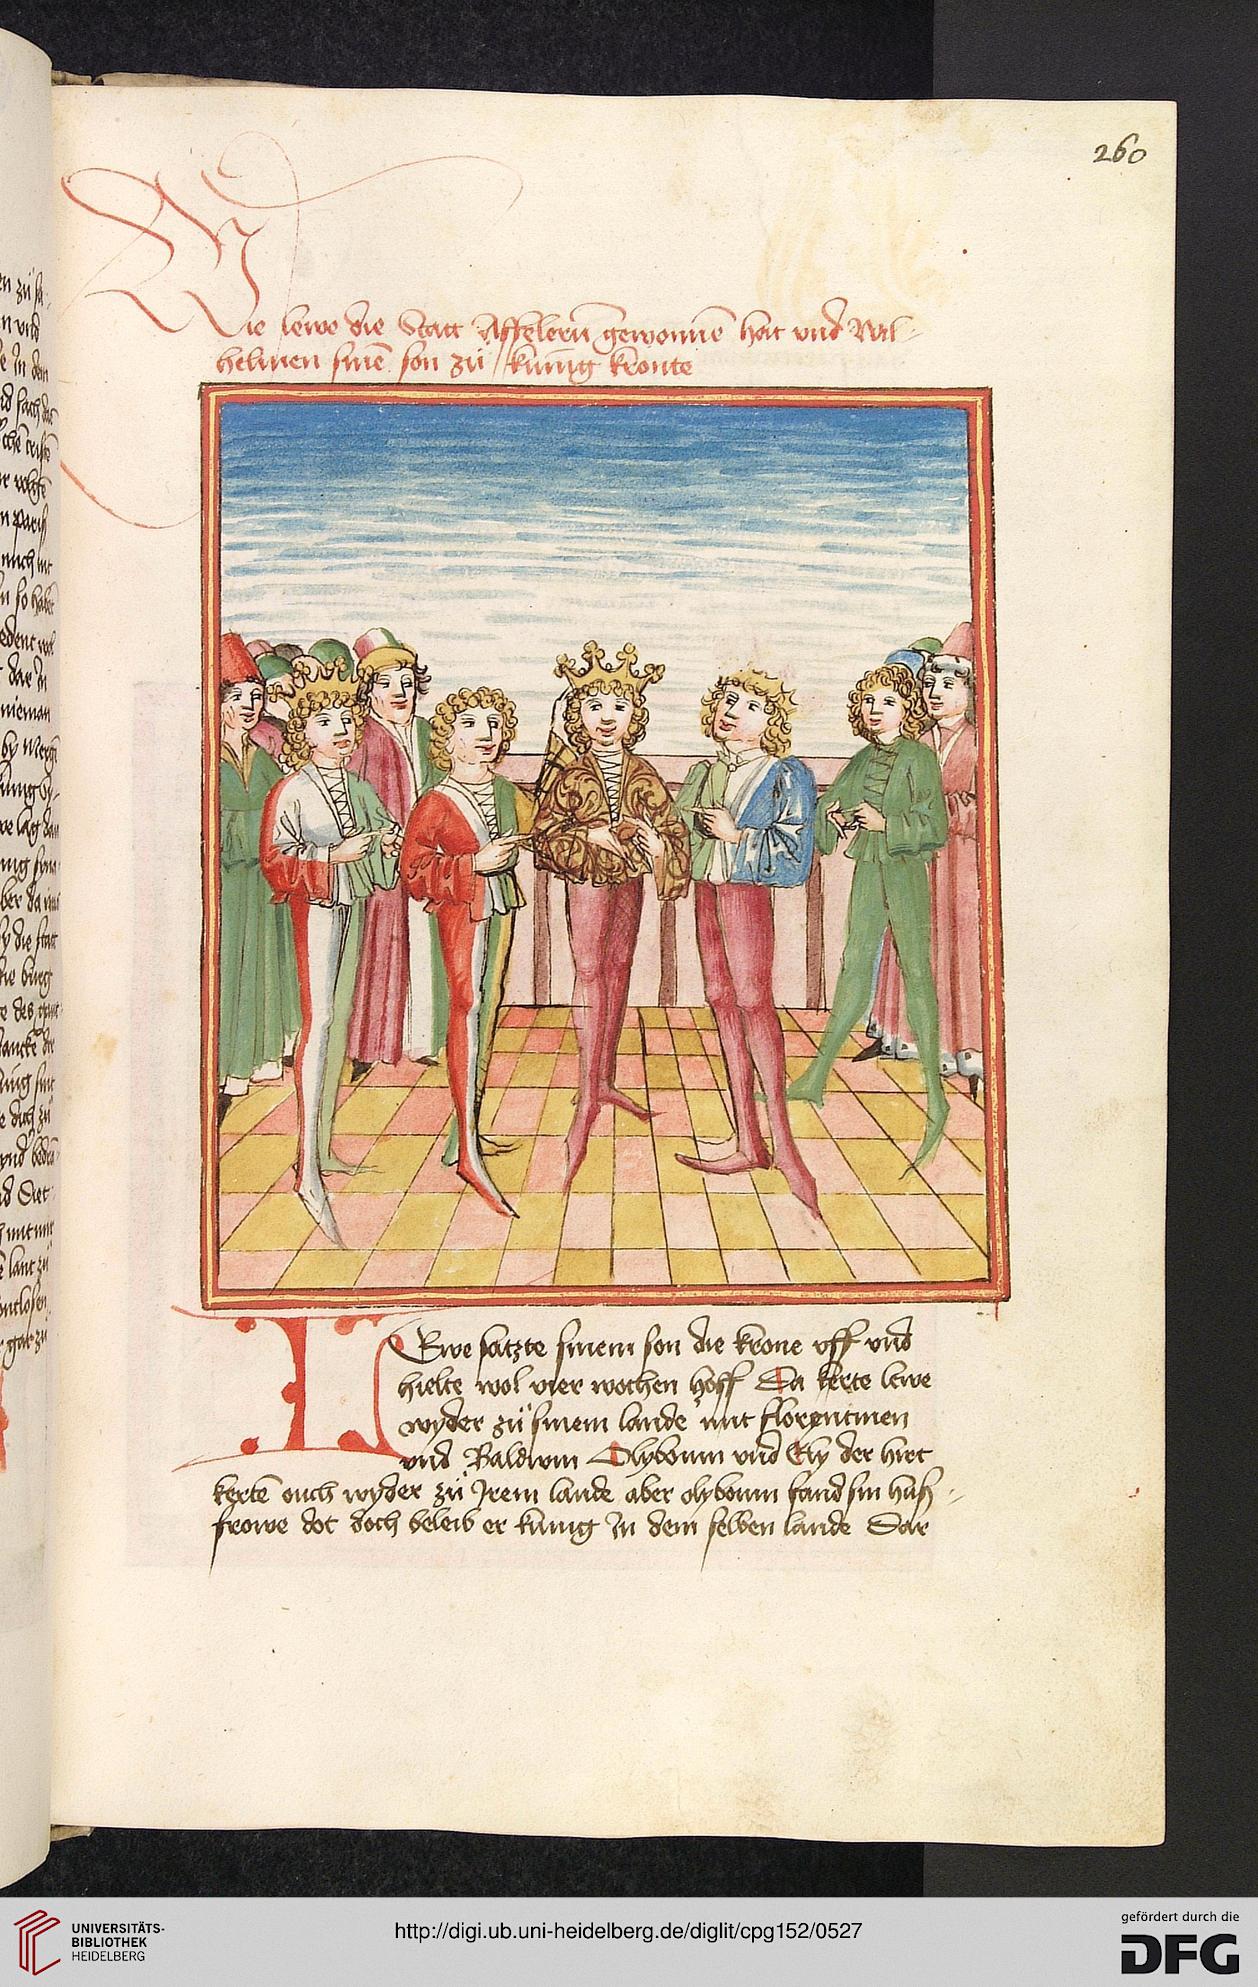 260
Wie lewe die Statt Affelern̄ gewonnē hat vnd Wil⸗
helmen sinē son zü kunig kronte
LEwe satzte sinem son die krone vff vnd
hielte wol vier wochen hoff Da kerte lewe
wyder zü sinem lande mit florentinen
vnd Baldwin Olybaum vnd Ely der hirt
kertē ouch wyder zü Jrem lande aber olybaum fand sin huß⸗
frowe dot doch beleib er kunig Jn dem selben lande Dar
UNIVERSITÄTS-
BIBLIOTHEK
HEIDELBERG
http://digi.ub.uni-heidelberg.de/diglit/cpg152/0527
gefördert durch die
DFG